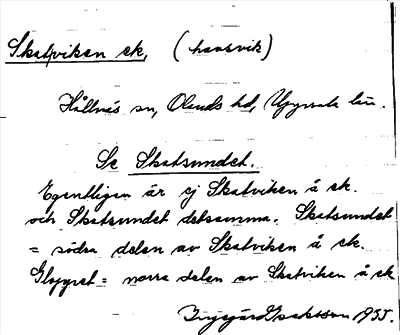 Skatviken ek, (havsvik)
Hållnäs sn, Olands hd, Uppsala län.
Se Skatsundet.
Egentligen är ej Skatviken å ek.
och Skatsundet detsamma. Skatsundet
= södra delen av Skatviken å ek.
= norra delen av Skatviken å ek
Ingegärd Isaksson 1935.